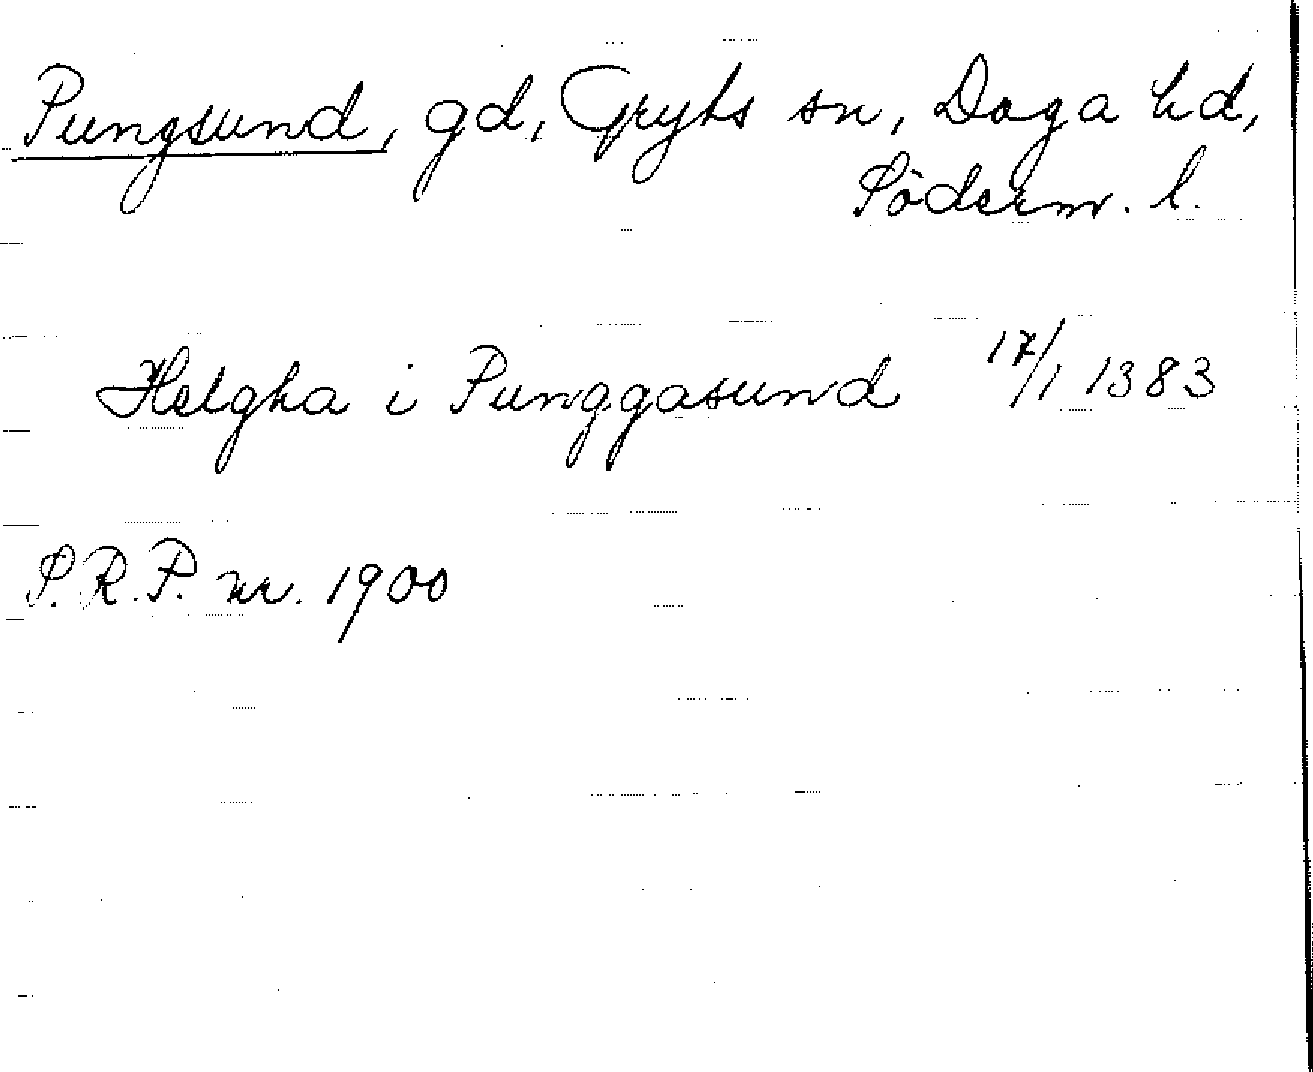 Pungsund, gd, Gryts sn, Daga hd,
Söderm. l.
Helgha i Punggasund 17/1 1383
S.R.P. nr. 1900